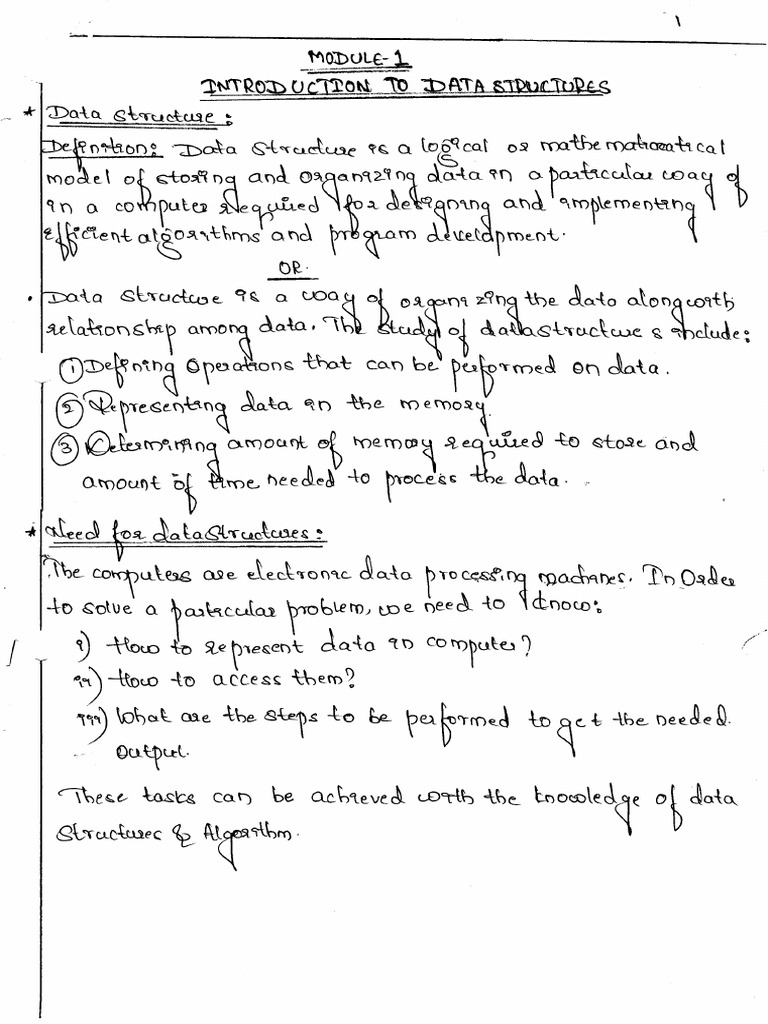 1
MODULE-1
INTRODUCTION TO DATA STRUCTURES
* Data Structure:
Definition: Data Structure is a logical or mathematical
model of storing and organizing data in a particular way of
in a computer required for designing and implementing
efficient algorithms and program development.
OR.
. Data Structure is a way of organizing the data along with
relationship among data. The study of datastructures include:
① Defining Operations that can be performed on data.
② Representing data in the memory.
③ Determining amount of memory required to store and
amount of time needed to process the data.
* Need for datastructures:
The computers are electronic data processing machines. In Order
to solve a particular problem, we need to know:
i) How to represent data in computer?
ii) How to access them?
iii) What are the steps to be performed to get the needed.
output.
These tasks can be achieved with the knowledge of data
Structures & Algorithm.